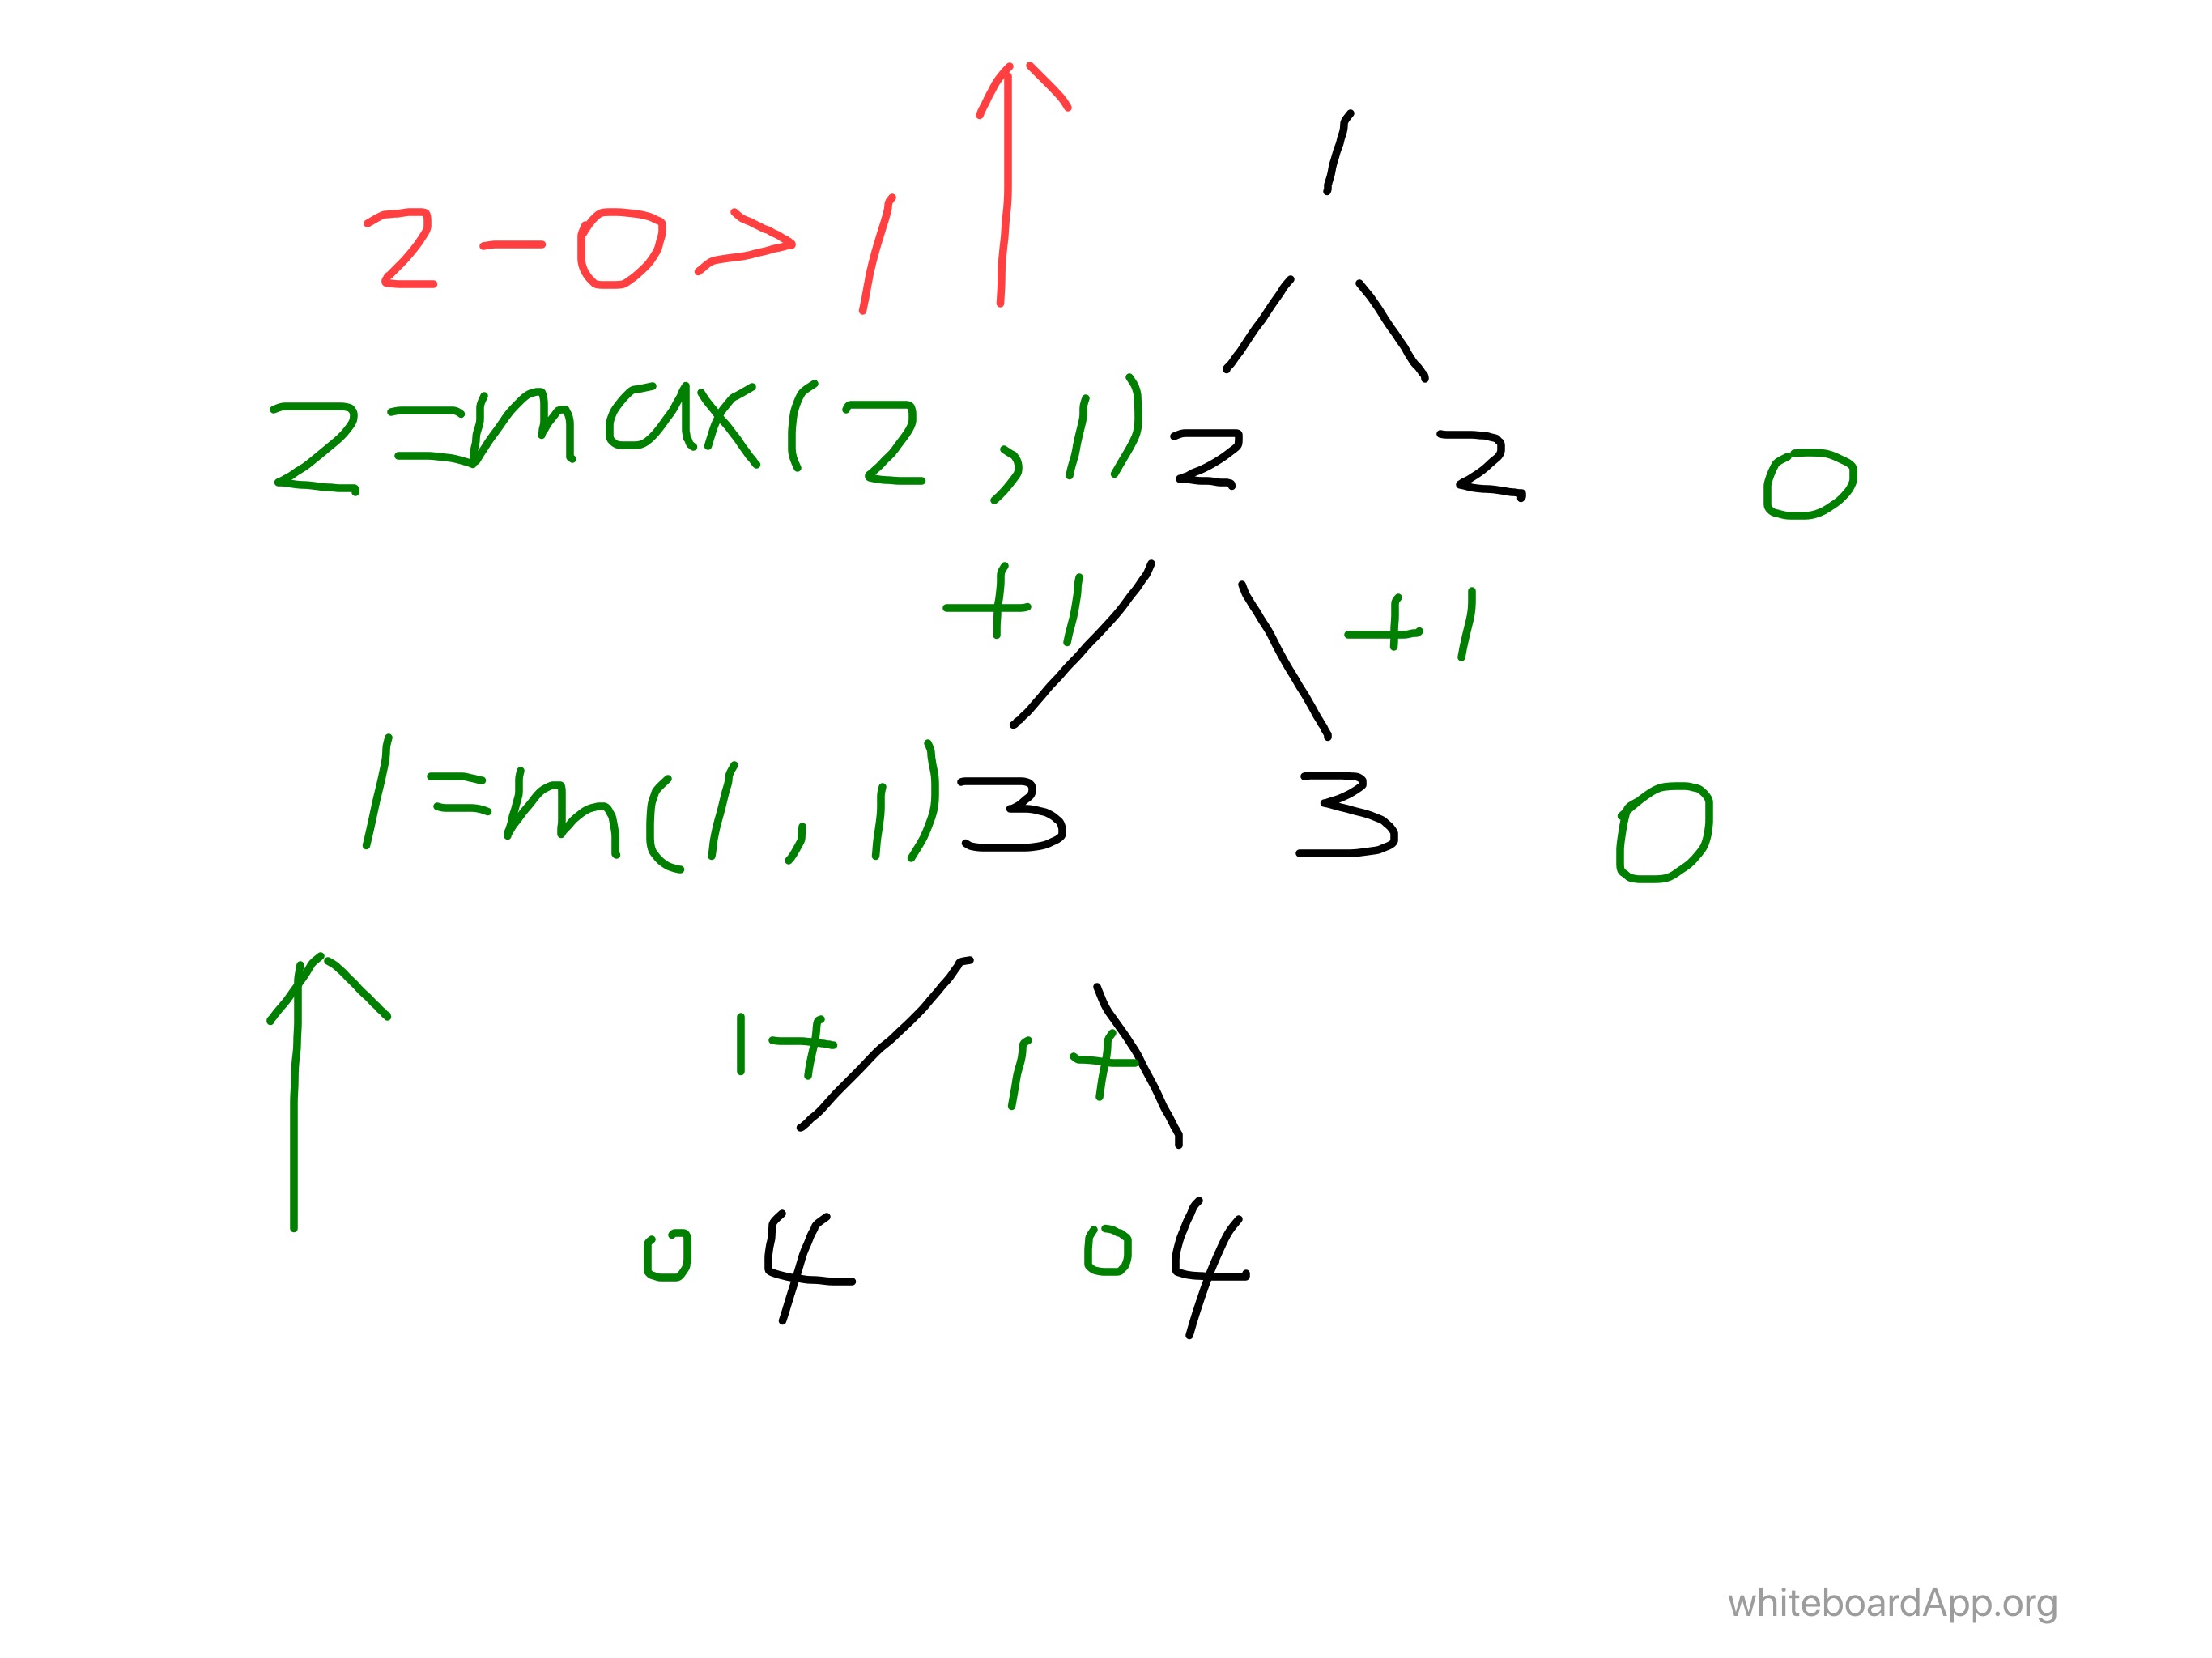 1
2 - 0 > 1
2 = max(2, 1) 2 2 0
+1 +1
1 = m(1, 1) 3 3 0
1+ 1+
0 4 0 4
whiteboardApp.org